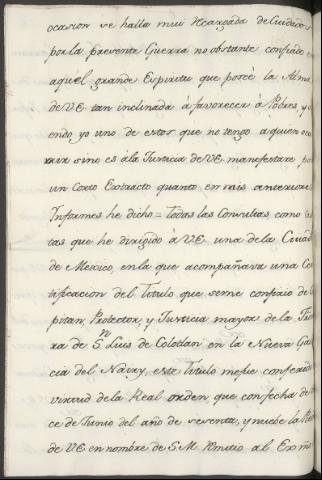 ocasion se halla mui recargada de Cuidados
por la presente Guerra no obstante confiado en
aquel grande Espiritu que porcè la Alma
de VE. tan inclinada à favorecer à Pobres, y
endo yo uno de estos que no tengo a quien ocu
rrir sino es à la Justicia de VE. manifestare por
un Corto Extracto quanto en mis anteriores
Informes he dicho = todas las Consultas, como
tas que he dirigido à VE una de la Ciudad
de Mexico, en la que acompañava una Cer
tificacion del Titulo que se me confirio de Ca
pitan, Protector, y Justicia mayor de la Fron
ra de Sn Luis de Colotlan en la Nueva Gali
cia del Nayry, este Titulo me fue conferido
virtud de la Real orden que con fecha de
ce de Junio del año de sesenta, y nueve la
de VE en nombre de S M. Remitio al Exmo